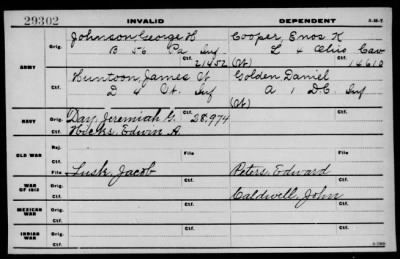 29302 INVALID DEPENDENT A-M-Y
Johnson, George H Cooper, Enos K
Orig. B 56 Pa Inf L 4 Ohio Cav
Ctf. 21452 (Ct) 14610
ARMY
Huntoon, James Ct Golden Daniel
Orig. D 4 Ct. Inf A 1 D.C. Inf
Ctf. (Ct)
NAVY Orig. Day, Jeremiah G. 28,974
Ctf. Hicks, Edwin A.
Rej.
OLD WAR File File
Ctf.
WAR OF 1812 Orig. Lusk, Jacob Peters, Edward
Ctf. Caldwell, John
MEXICAN WAR Orig.
Ctf.
INDIAN WAR Orig.
Ctf.